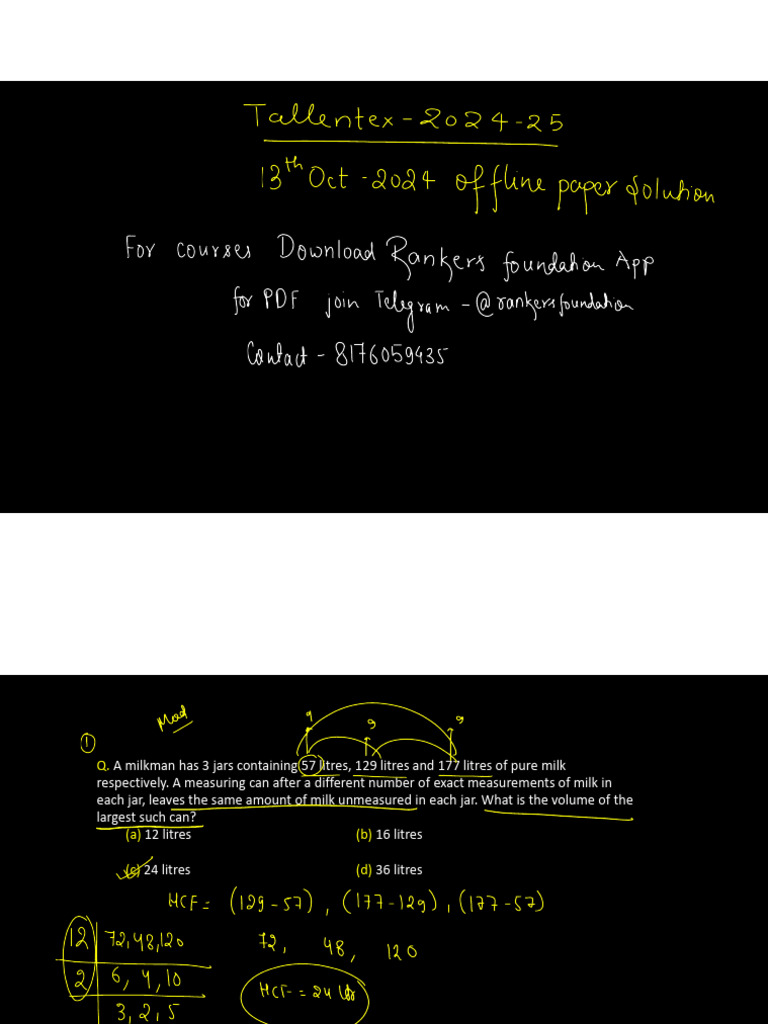 Tallentex - 2024-25
13th Oct - 2024 offline paper Solution
For courses Download Rankers foundation App
for PDF join Telegram - @rankersfoundation
Contact - 8176059435
Mod
9 9 9
①
Q. A milkman has 3 jars containing 57 litres, 129 litres and 177 litres of pure milk
respectively. A measuring can after a different number of exact measurements of milk in
each jar, leaves the same amount of milk unmeasured in each jar. What is the volume of the
largest such can?
(a) 12 litres (b) 16 litres
(c) 24 litres (d) 36 litres
HCF = (129-57), (177-129), (177-57)
12 | 72, 48, 120 72, 48, 120
2 | 6, 4, 10 HCF = 24 ltr
3, 2, 5